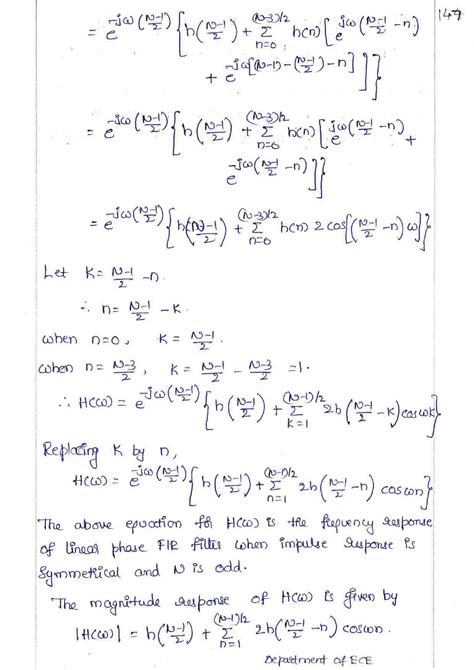 147
= e^{-jω(\frac{N-1}{2})} { h(\frac{N-1}{2}) + Σ_{n=0}^{(N-3)/2} h(n) [ e^{jω(\frac{N-1}{2} - n)}
+ e^{-jω[(N-1) - (\frac{N-1}{2}) - n]} ] }
= e^{-jω(\frac{N-1}{2})} { h(\frac{N-1}{2}) + Σ_{n=0}^{(N-3)/2} h(n) [ e^{jω(\frac{N-1}{2} - n)} +
e^{-jω(\frac{N-1}{2} - n)} ] }
= e^{-jω(\frac{N-1}{2})} { h(\frac{N-1}{2}) + Σ_{n=0}^{(N-3)/2} h(n) 2 cos[(\frac{N-1}{2} - n) ω] }
Let K = \frac{N-1}{2} - n.
∴ n = \frac{N-1}{2} - K.
when n=0, K = \frac{N-1}{2}.
when n = \frac{N-3}{2}, K = \frac{N-1}{2} - \frac{N-3}{2} = 1.
∴ H(ω) = e^{-jω(\frac{N-1}{2})} { h(\frac{N-1}{2}) + Σ_{K=1}^{(N-1)/2} 2h(\frac{N-1}{2} - K) cos ωK }
Replacing K by n,
H(ω) = e^{-jω(\frac{N-1}{2})} { h(\frac{N-1}{2}) + Σ_{n=1}^{(N-1)/2} 2h(\frac{N-1}{2} - n) cos ωn }
The above equation for H(ω) is the frequency response
of linear phase FIR filter when impulse response is
symmetrical and N is odd.
The magnitude response of H(ω) is given by
|H(ω)| = h(\frac{N-1}{2}) + Σ_{n=1}^{(N-1)/2} 2h(\frac{N-1}{2} - n) cos ωn.
Department of ECE